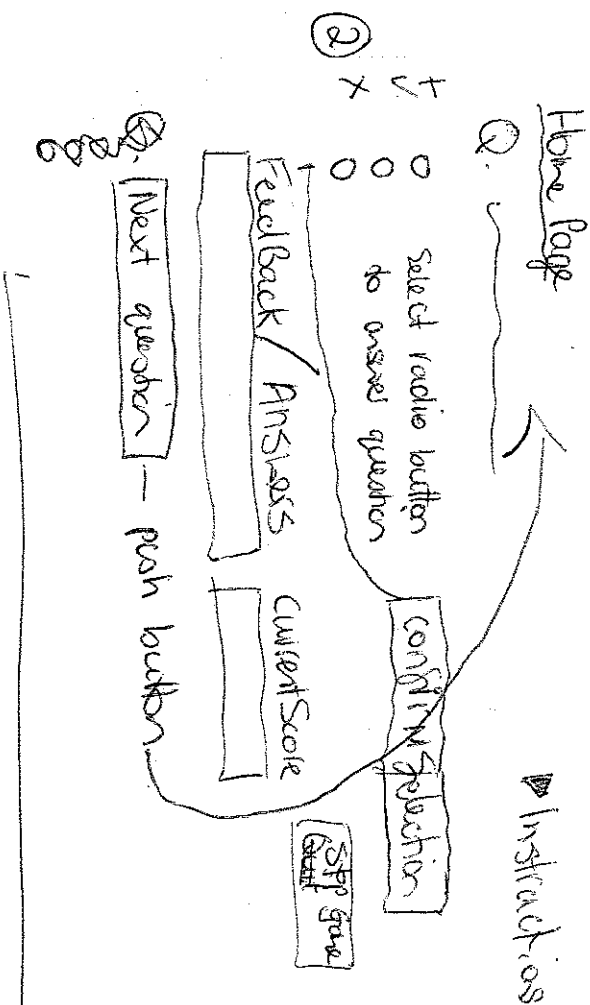 Home Page
Instructions
Q.
Select radio button
to answer question
confirm Selection
2
FeedBack / Answers
Current Score
Stop game
Q. Next question — push button